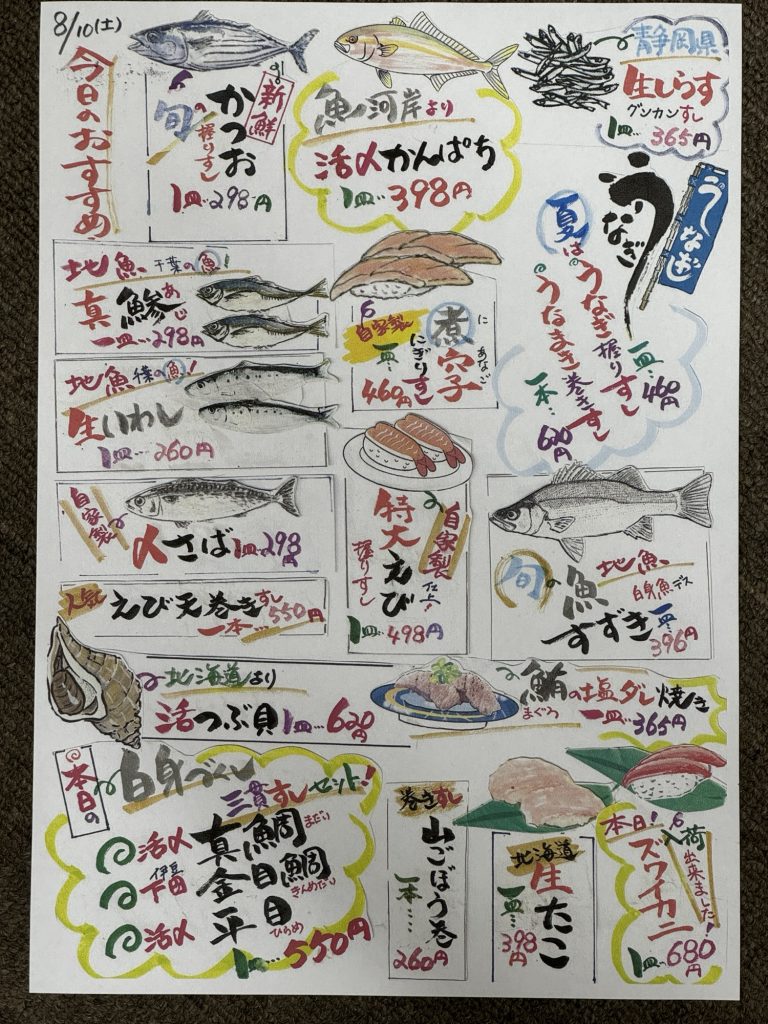 8/10(土)
今日のおすすめ
新鮮
旬の握りすし
かつお
1皿‥298円
魚河岸より
活〆かんぱち
1皿‥398円
静岡県
生しらす
グンカンすし
1皿‥365円
うなぎ
うなぎ
夏はうなぎ握りすし
一皿‥460円
うなまき巻きすし
一本‥620円
地魚 千葉の魚!
真鯵 あじ
一皿‥298円
自家製
煮穴子
にあなご
にぎりすし
一皿‥460円
地魚 千葉の魚!
生いわし
1皿‥260円
自家製
〆さば 1皿‥298円
自家製
仕込!
特大えび
握りすし
1皿‥498円
旬の魚
地魚
白身魚デス
すずき
一皿‥396円
人気
えび天巻きすし
一本‥550円
北海道より
活つぶ貝 1皿‥620円
鮪の塩ダレ焼き
まぐろ
一皿‥365円
本日の
白身づくし
三貫すしセット!
活〆 真鯛 まだい
伊豆
下田 金目鯛 きんめだい
活〆 平目 ひらめ
1皿‥550円
巻きすし
山ごぼう巻
一本‥‥260円
北海道
生たこ
一皿‥398円
本日!
入荷出来ました!
ズワイカニ
1皿‥680円